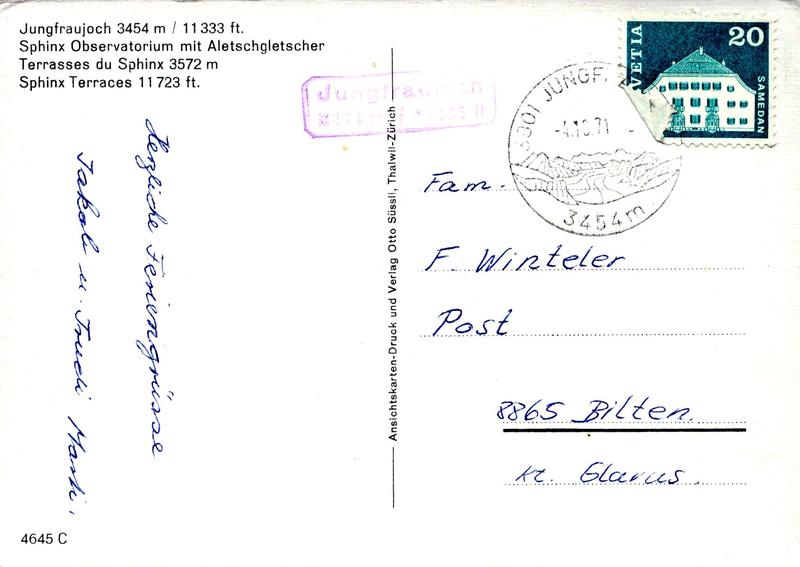 Jungfraujoch 3454 m / 11 333 ft.
Sphinx Observatorium mit Aletschgletscher
Terrasses du Sphinx 3572 m
Sphinx Terraces 11 723 ft.
Jungfraujoch
11 333 ft
3801 JUNGF
-4.10.71
3454 m
HELVETIA
20
SAMEDAN
Herzliche Feriengrüsse
Jakob u. Trudi Marti.
Ansichtskarten-Druck und Verlag Otto Süssli, Thalwil-Zürich
Fam.
F. Winteler
Post
8865 Bilten.
Kt. Glarus.
4645 C